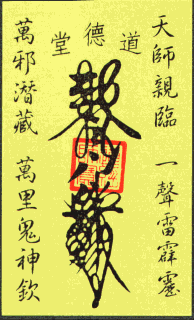 道德堂
天師親臨 一聲雷霹靂
萬邪潛藏 萬里鬼神欽